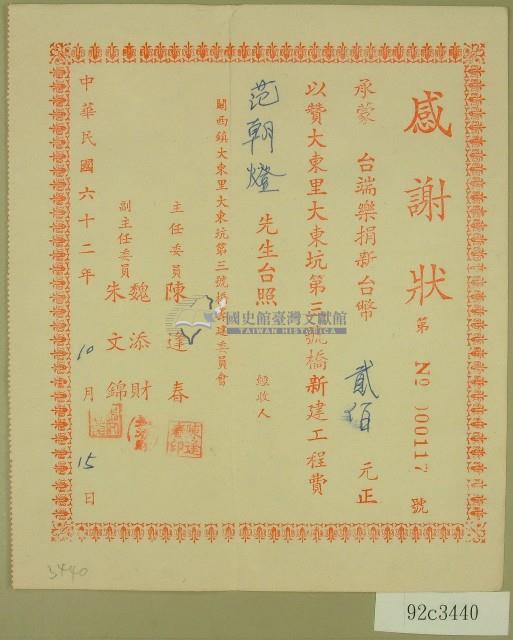 感謝狀
第 № 000117 號
承蒙 台端樂捐新台幣 貳佰 元正
以贊大東里大東坑第三號橋新建工程費
范朝燈 先生台照
經收人
關西鎮大東里大東坑第三號橋建委員會
主任委員 陳逢春
副主任委員 魏添財
朱文錦
中華民國六十二年 10 月 15 日
國史館臺灣文獻館
TAIWAN HISTORICA
3440
92c3440